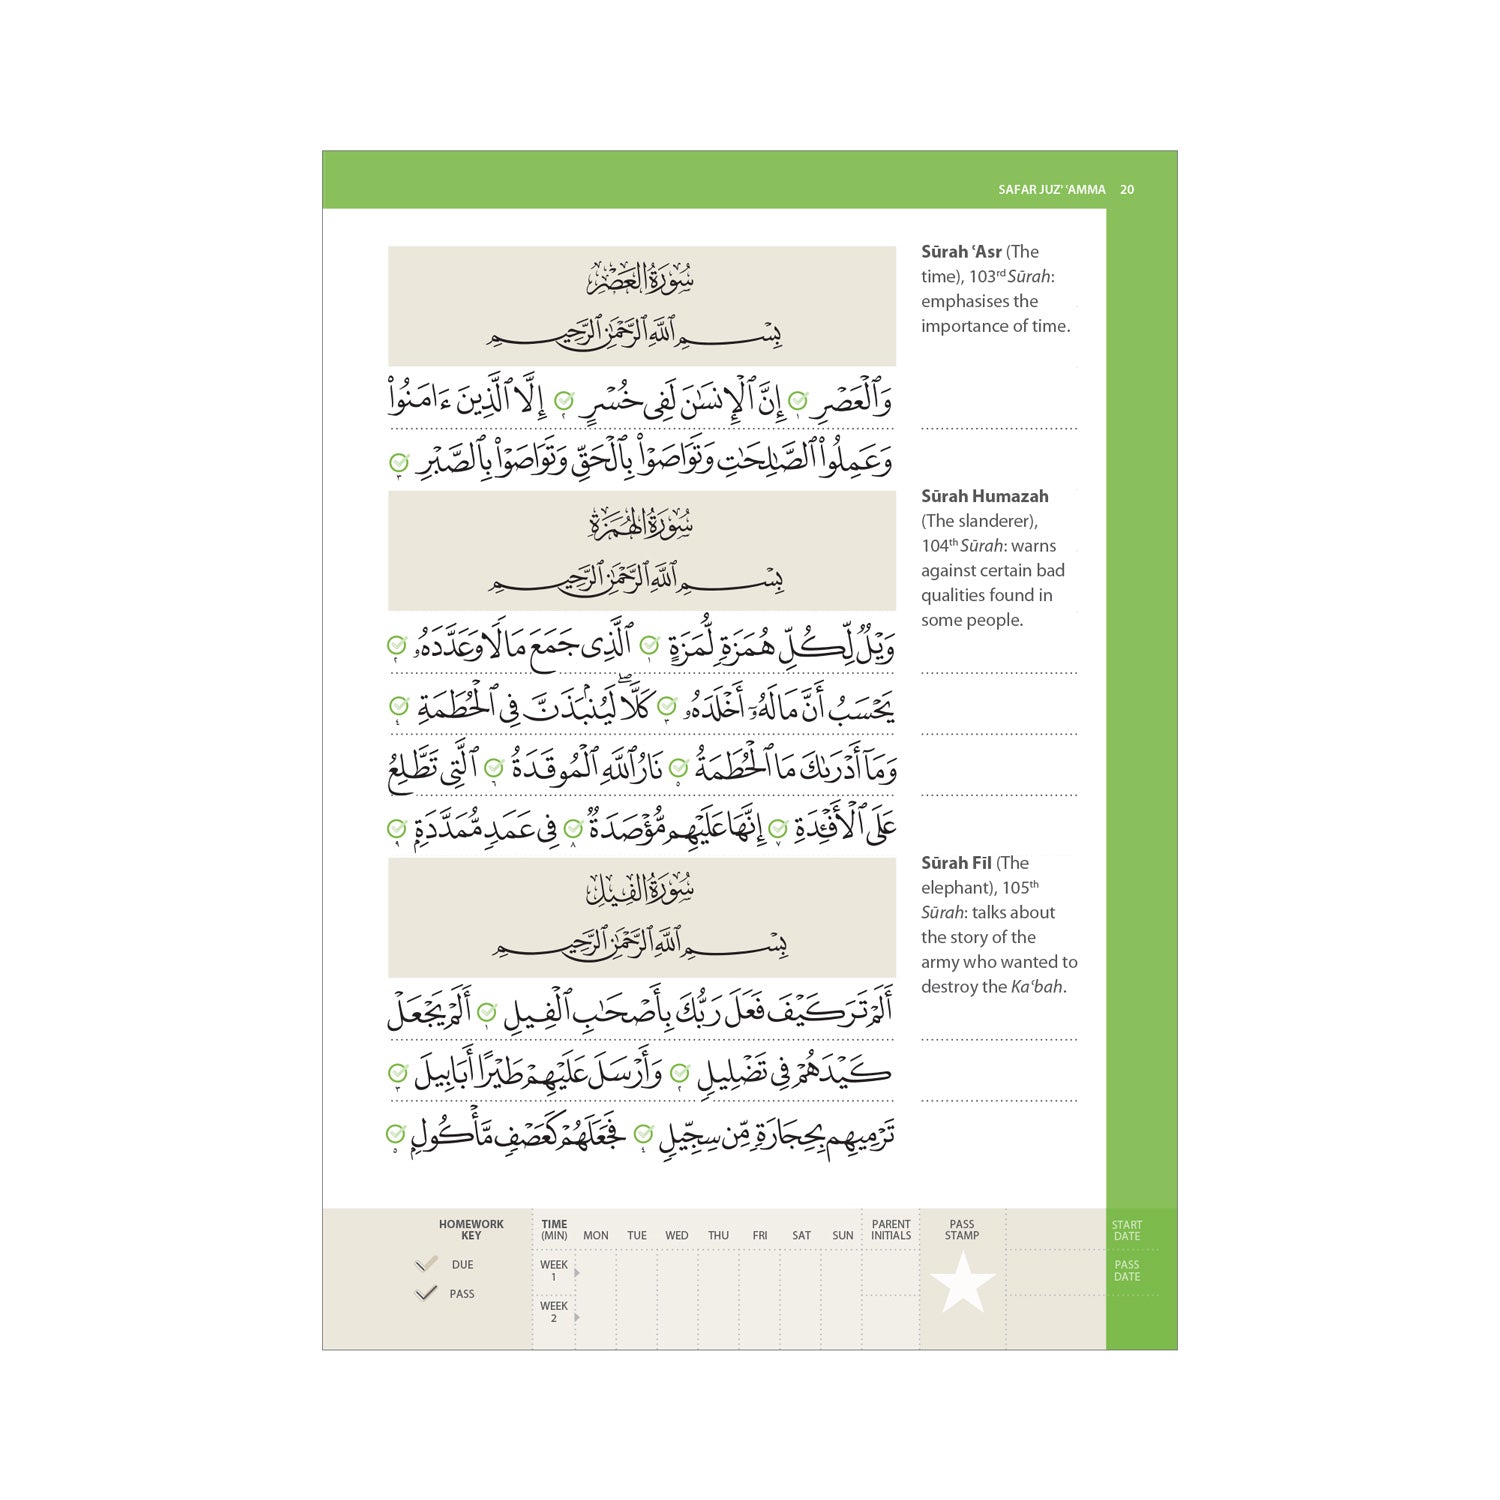 SAFAR JUZ' ʿAMMA 20
سُورَةُ الْعَصْرِ
بِسْمِ ٱللَّهِ ٱلرَّحْمَٰنِ ٱلرَّحِيمِ
وَٱلْعَصْرِ ١ إِنَّ ٱلْإِنسَٰنَ لَفِى خُسْرٍ ٢ إِلَّا ٱلَّذِينَ ءَامَنُوا۟
وَعَمِلُوا۟ ٱلصَّٰلِحَٰتِ وَتَوَاصَوْا۟ بِٱلْحَقِّ وَتَوَاصَوْا۟ بِٱلصَّبْرِ ٣
Sūrah ʿAsr (The
time), 103rd Sūrah:
emphasises the
importance of time.
سُورَةُ الْهُمَزَةِ
بِسْمِ ٱللَّهِ ٱلرَّحْمَٰنِ ٱلرَّحِيمِ
وَيْلٌ لِّكُلِّ هُمَزَةٍ لُّمَزَةٍ ١ ٱلَّذِى جَمَعَ مَالًا وَعَدَّدَهُۥ ٢
يَحْسَبُ أَنَّ مَالَهُۥٓ أَخْلَدَهُۥ ٣ كَلَّا ۖ لَيُنۢبَذَنَّ فِى ٱلْحُطَمَةِ ٤
وَمَآ أَدْرَىٰكَ مَا ٱلْحُطَمَةُ ٥ نَارُ ٱللَّهِ ٱلْمُوقَدَةُ ٦ ٱلَّتِى تَطَّلِعُ
عَلَى ٱلْأَفْـِٔدَةِ ٧ إِنَّهَا عَلَيْهِم مُّؤْصَدَةٌ ٨ فِى عَمَدٍ مُّمَدَّدَةٍۭ ٩
Sūrah Humazah
(The slanderer),
104th Sūrah: warns
against certain bad
qualities found in
some people.
سُورَةُ الْفِيلِ
بِسْمِ ٱللَّهِ ٱلرَّحْمَٰنِ ٱلرَّحِيمِ
أَلَمْ تَرَ كَيْفَ فَعَلَ رَبُّكَ بِأَصْحَٰبِ ٱلْفِيلِ ١ أَلَمْ يَجْعَلْ
كَيْدَهُمْ فِى تَضْلِيلٍ ٢ وَأَرْسَلَ عَلَيْهِمْ طَيْرًا أَبَابِيلَ ٣
تَرْمِيهِم بِحِجَارَةٍ مِّن سِجِّيلٍ ٤ فَجَعَلَهُمْ كَعَصْفٍ مَّأْكُولٍۭ ٥
Sūrah Fīl (The
elephant), 105th
Sūrah: talks about
the story of the
army who wanted to
destroy the Kaʿbah.
HOMEWORK
KEY
DUE
PASS
TIME
(MIN) MON TUE WED THU FRI SAT SUN
PARENT
INITIALS
PASS
STAMP
WEEK
1
WEEK
2
START
DATE
PASS
DATE